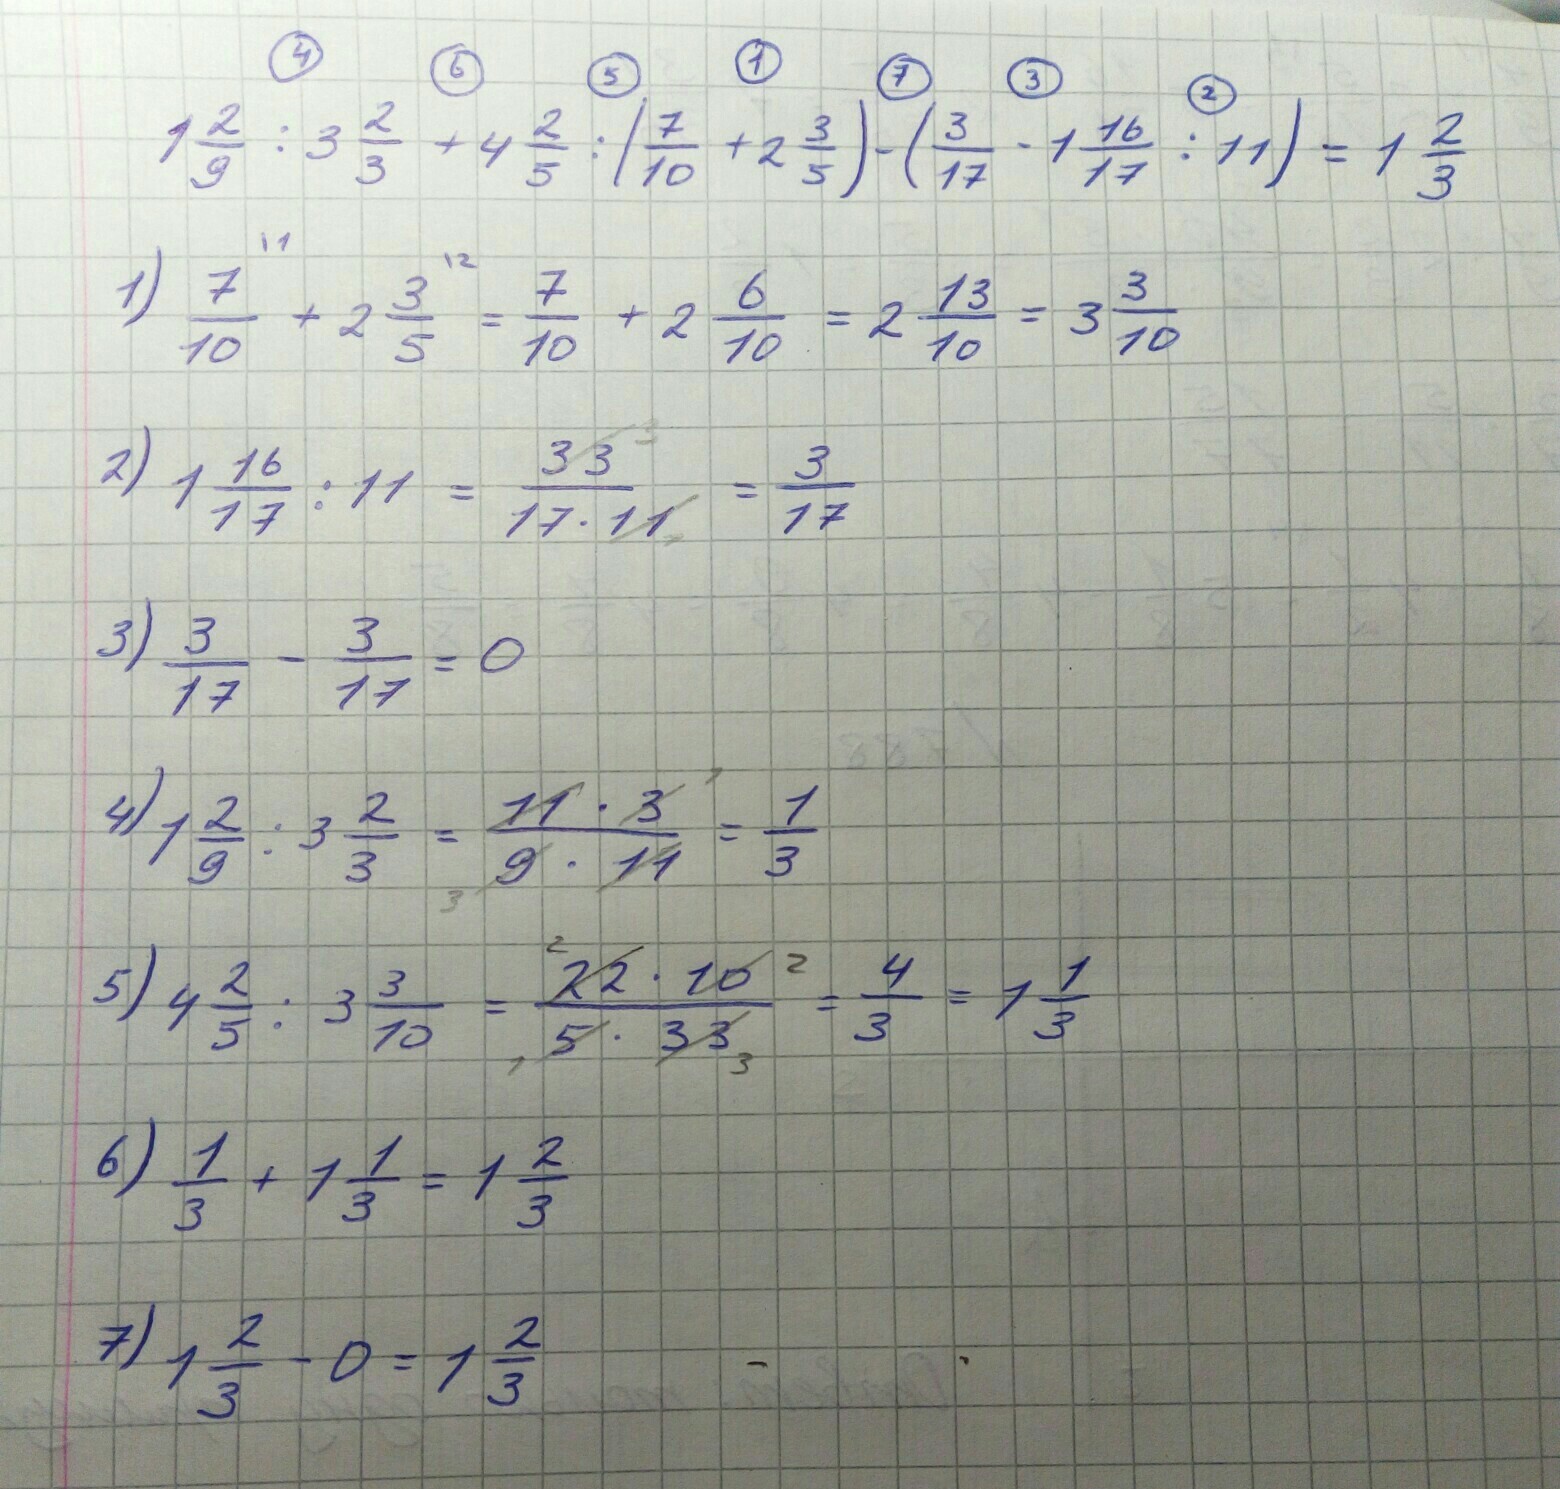 ④ ⑥ ⑤ ① ⑦ ③ ②
1 2/9 : 3 2/3 + 4 2/5 : (7/10 + 2 3/5) - (3/17 - 1 16/17 : 11) = 1 2/3
1) 7/10 \1 + 2 3/5 \2 = 7/10 + 2 6/10 = 2 13/10 = 3 3/10
2) 1 16/17 : 11 = 33 3/17 · 11 = 3/17
3) 3/17 - 3/17 = 0
4) 1 2/9 : 3 2/3 = 11 · 3 1/3 9 · 11 = 1/3
5) 4 2/5 : 3 3/10 = 2 22 · 10 2/1 5 · 33 3 = 4/3 = 1 1/3
6) 1/3 + 1 1/3 = 1 2/3
7) 1 2/3 - 0 = 1 2/3